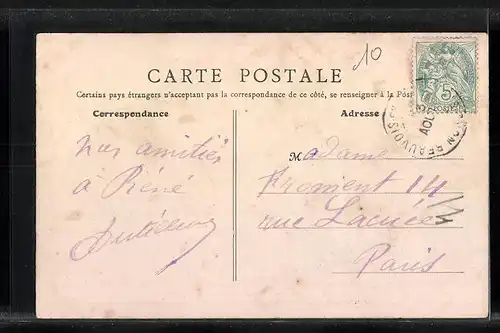 10
CARTE POSTALE
Certains pays étrangers n'acceptant pas la correspondance de ce côté, se renseigner à la Poste
Correspondance
Adresse
nos amitiés
à Réné
Madame
Froment 14
rue Lacuée
Paris
5
AOU
BEAUVOISIN